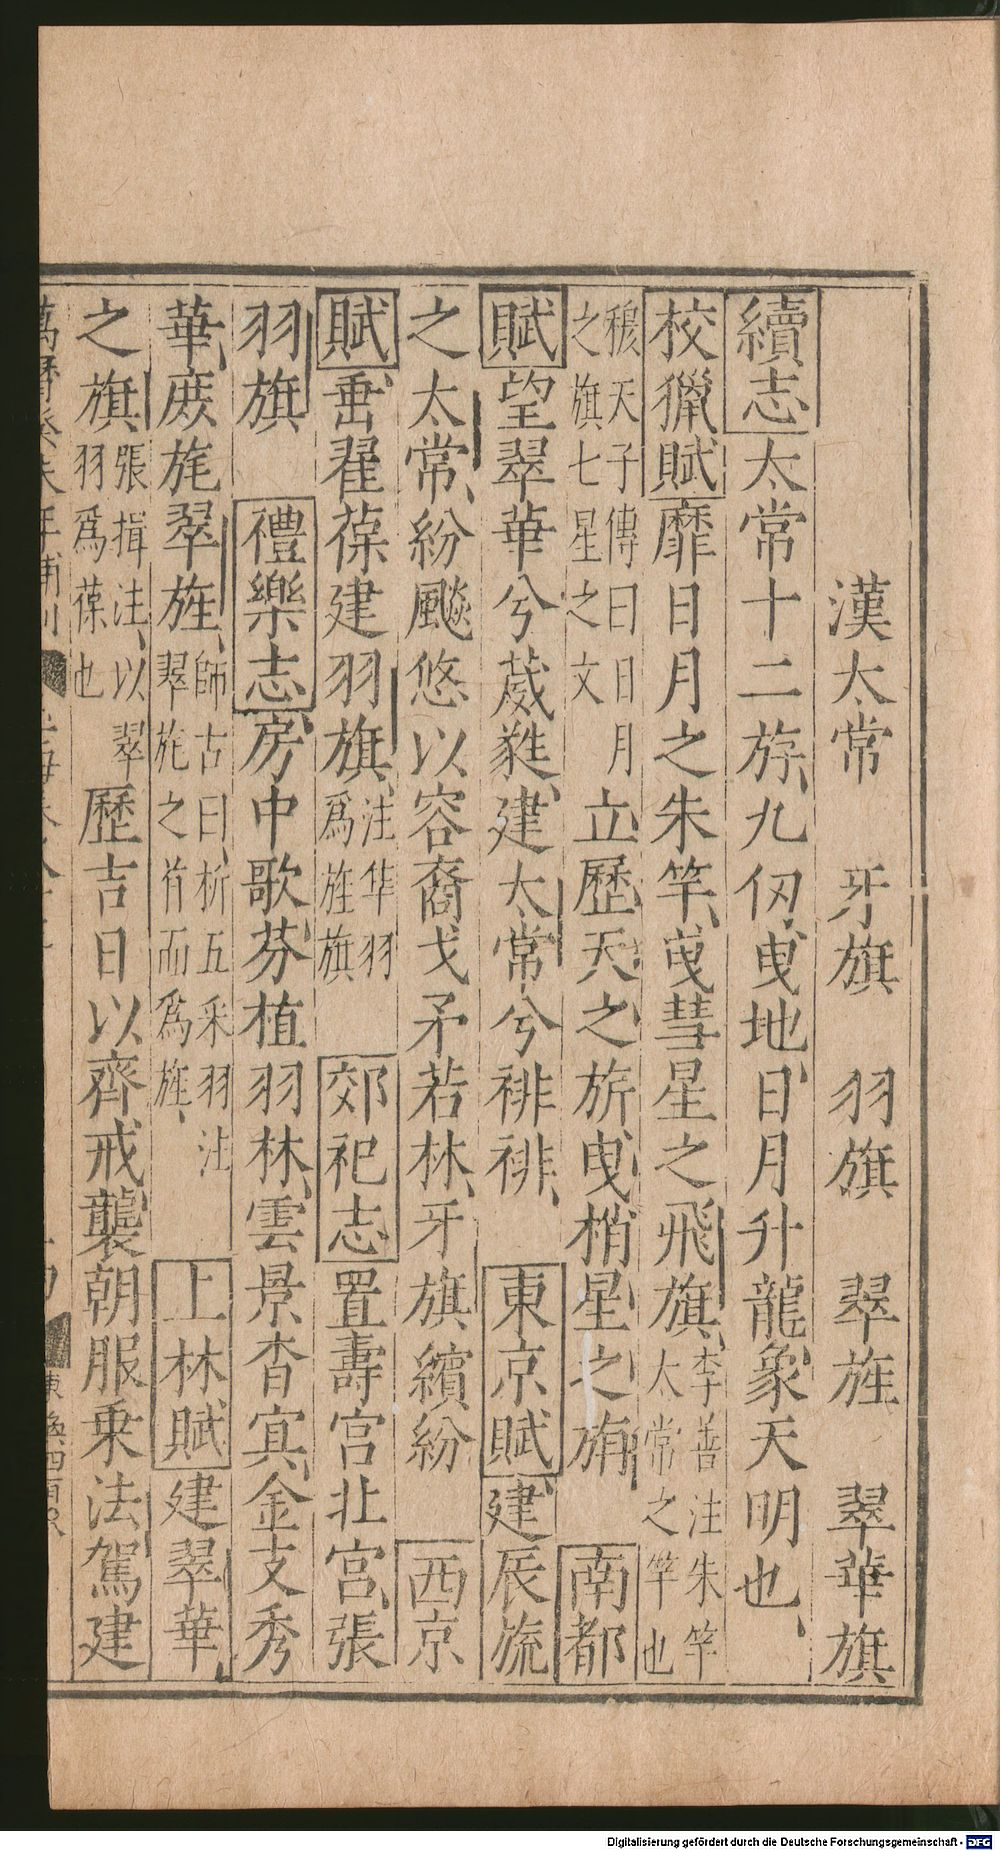 漢太常 牙旗 羽旗 翠旌 翠華旗
續志太常十二斿九仞曳地日月升龍象天明也
校獵賦靡日月之朱竿曳彗星之飛旗李善注朱竿太常之竿也
穆天子傳曰日月之旗七星之文立歷天之旂曳梢星之旃 南都
賦望翠華兮葳蕤建太常兮裶裶 東京賦建辰旒
之太常紛颷悠以容裔戈矛若林牙旗繽紛 西京
賦垂翟葆建羽旗注华羽為旌旗 郊祀志置壽宮北宮張
羽旗 禮樂志房中歌芬植羽林雲景杳冥金支秀
華庶旄翠旌師古曰析五采羽注翠旄之首而為旌 上林賦建翠華
之旗張揖注以翠羽為葆也 歷吉日以齊戒襲朝服乗法駕建
Digitalisierung gefördert durch die Deutsche Forschungsgemeinschaft - DFG